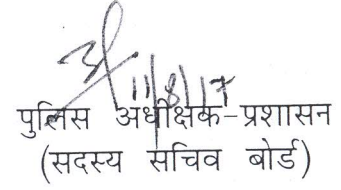 11/8/17
पुलिस अधीक्षक-प्रशासन
(सदस्य सचिव बोर्ड)